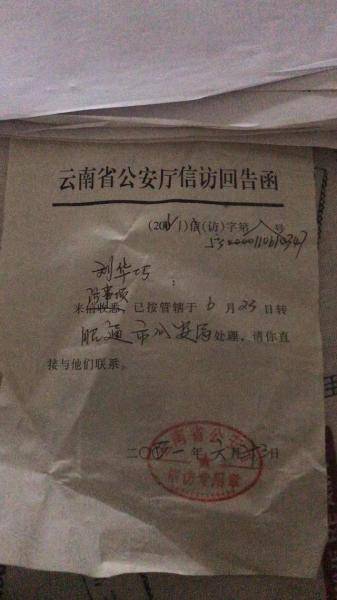 云南省公安厅信访回告函
(2011)信(访)字第 八 号
刘华巧:
来信收悉,已按管辖于 6 月 23 日转
昭通市公安局处理,请你直
接与他们联系。
云南省公安厅
二〇一一年六月廿三日
信访专用章